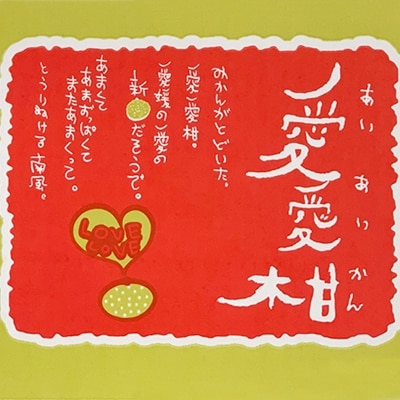 愛愛柑
あいあいかん
みかんがとどいた。
愛愛柑。
愛媛の愛の
新 だそうで。
あまくて
あまずっぱくて
またあまくって。
とおりぬける南風。
LOVE
LOVE